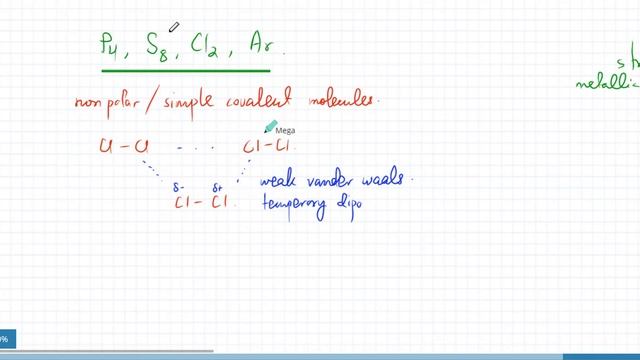 P4, S8, Cl2, Ar.
non polar / simple covalent molecules.
Mega
Cl - Cl . . . Cl - Cl.
δ- δ+
Cl - Cl.
weak vander waals.
temperory dipo
st
metallic
0%